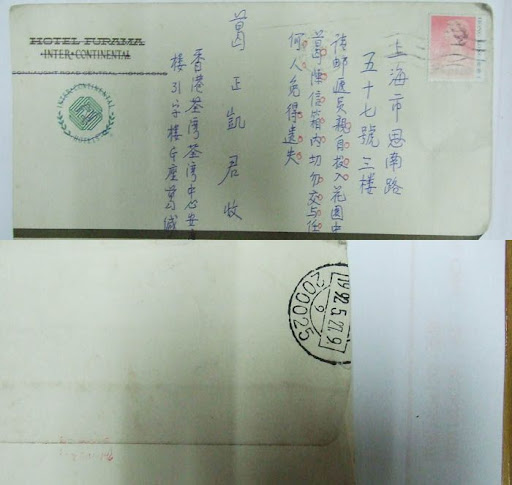 HOTEL FURAMA
INTER•CONTINENTAL
INTER•CONTINENTAL
HOTELS
上海市思南路
五十七號三樓
請邮遞员親自投入花園中
葛陳信箱內切勿交与任
何人免得遺失
葛正凱君收
香港荃灣荃灣中心安
樓31字樓G座葛缄
1992.5.27.9
200025